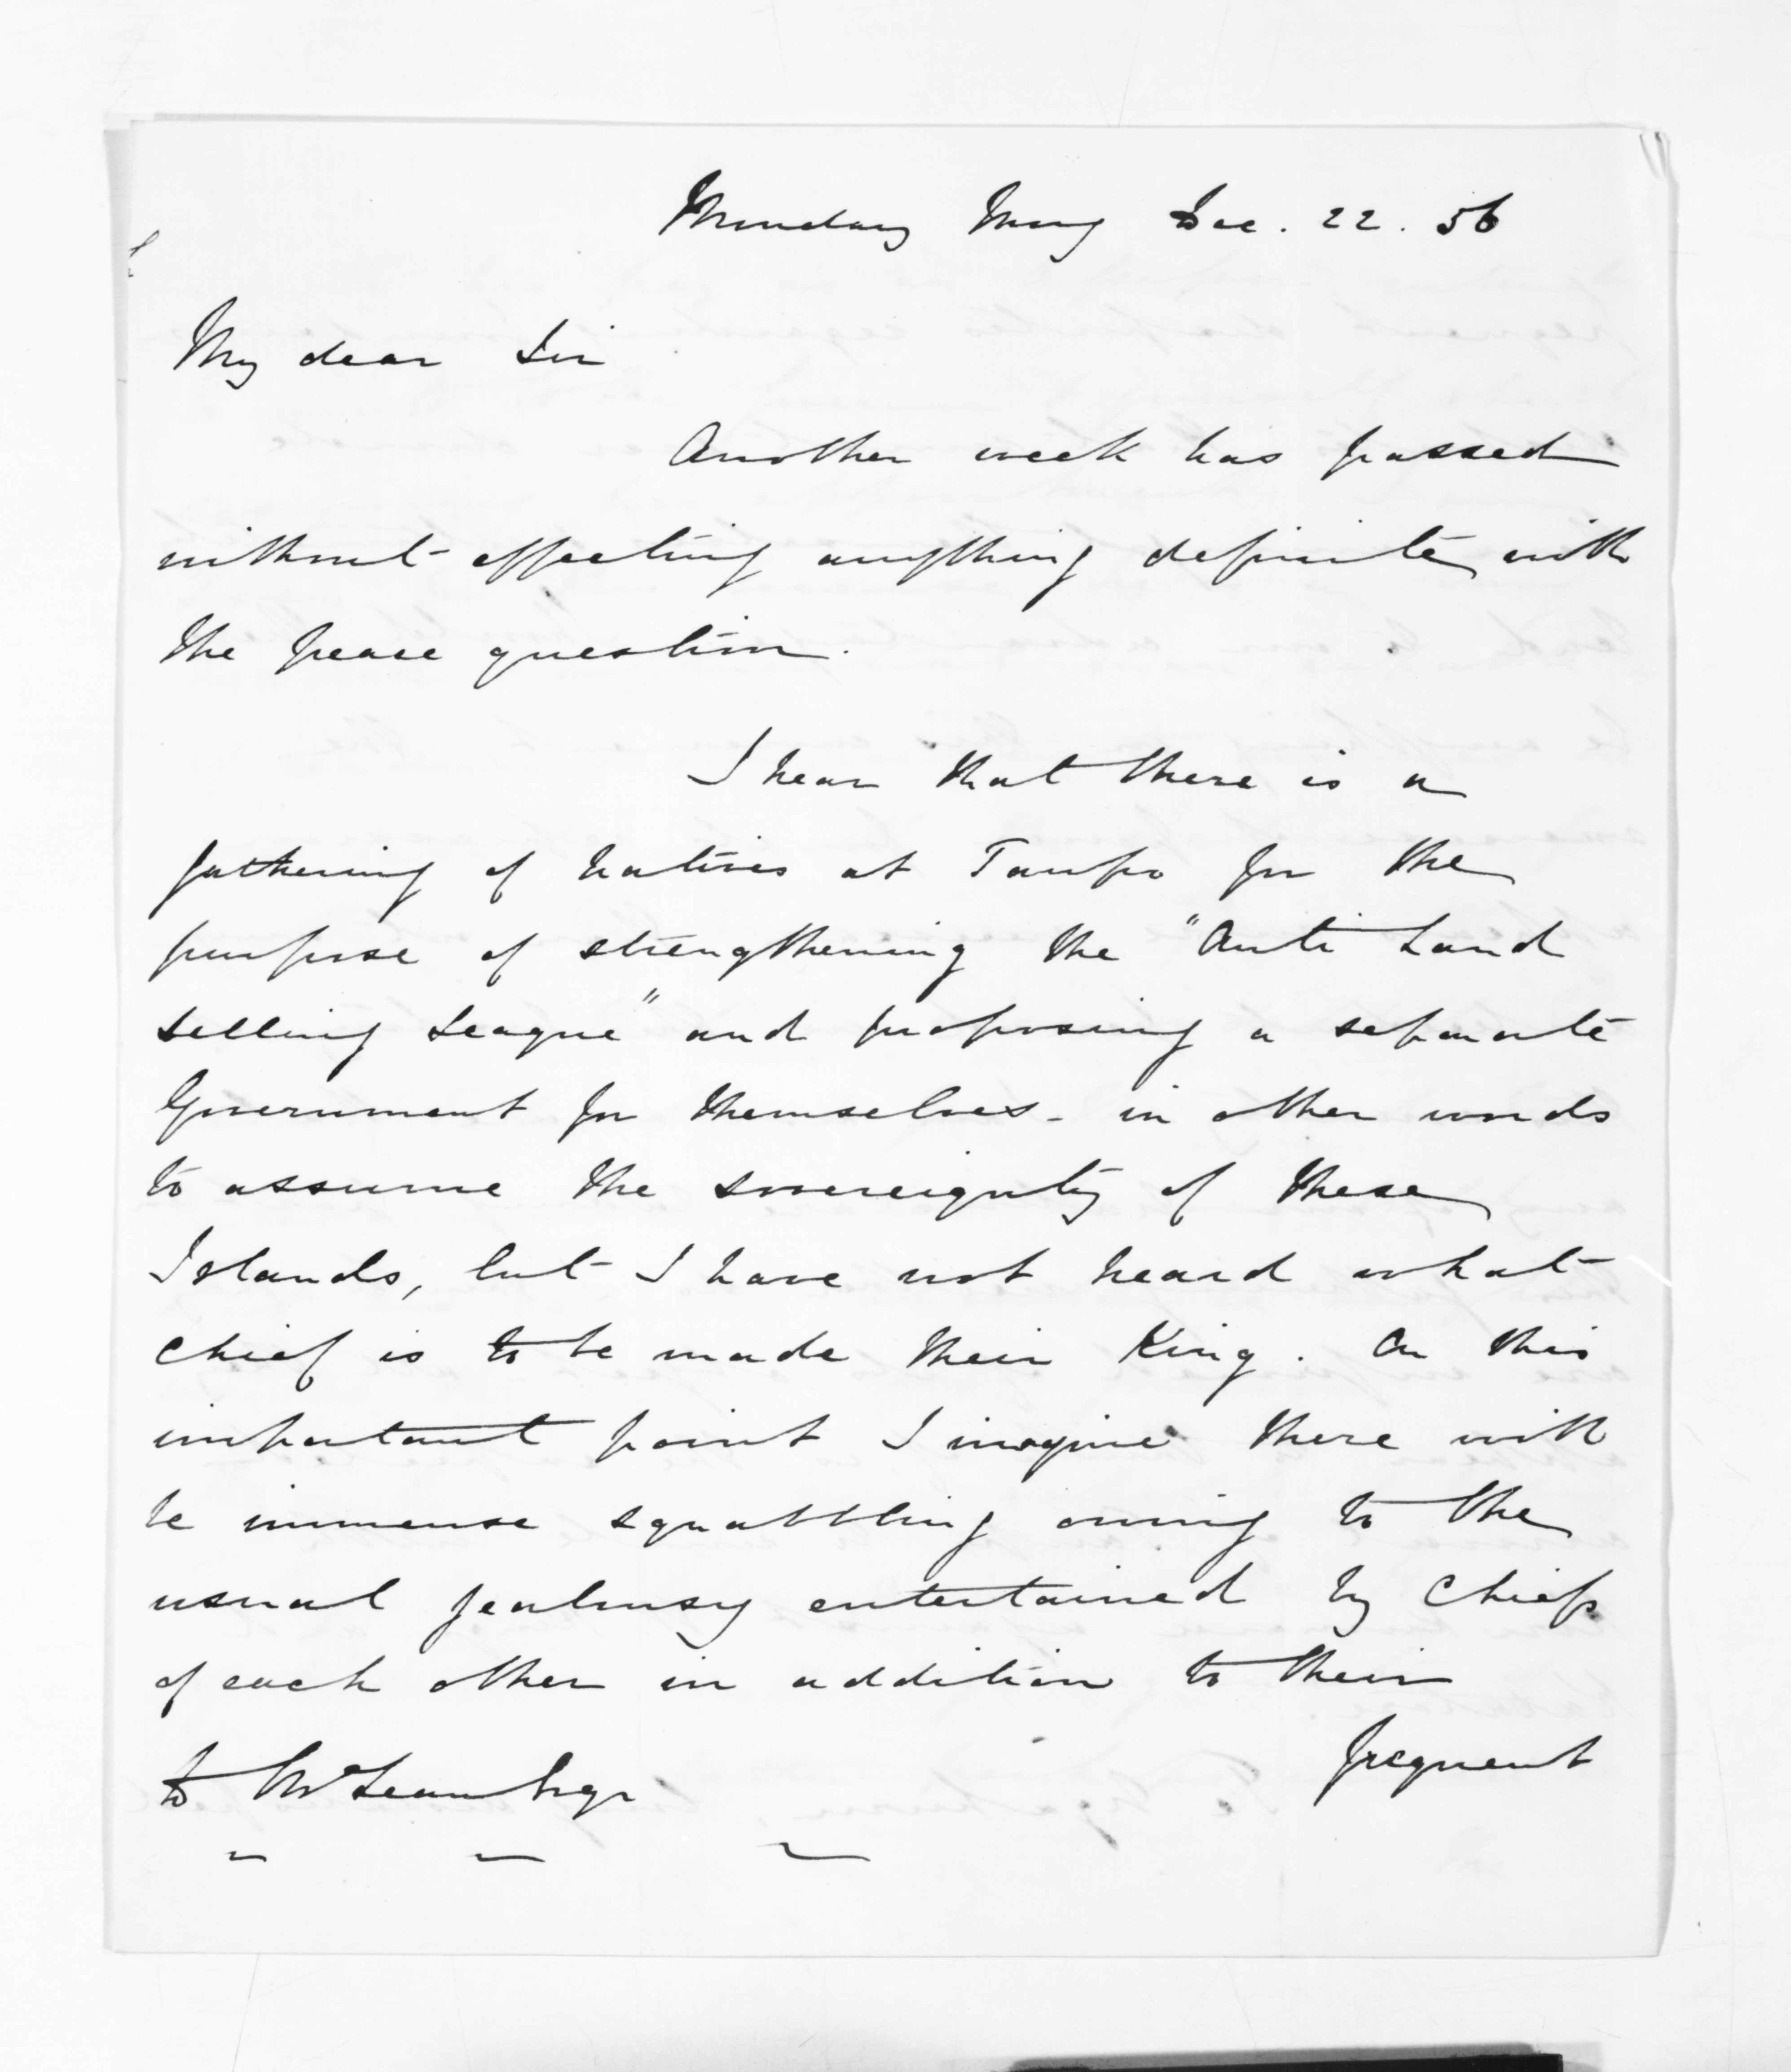 Monday Mng Dec. 22. 56
My dear Sir
Another week has passed
without effecting anything definite with
the peace question.
I hear that there is a
gathering of natives at Taupo for the
purpose of strengthening the "Anti Land
selling League" and proposing a separate
Government for themselves - in other words
to assume the sovereignty of these
Islands, but I have not heard what
chief is to be made their King. On this
important point I imagine there will
be immense squabbling owing to the
usual jealousy entertained by Chiefs
of each other in addition to their
frequent
to McLean Esqr